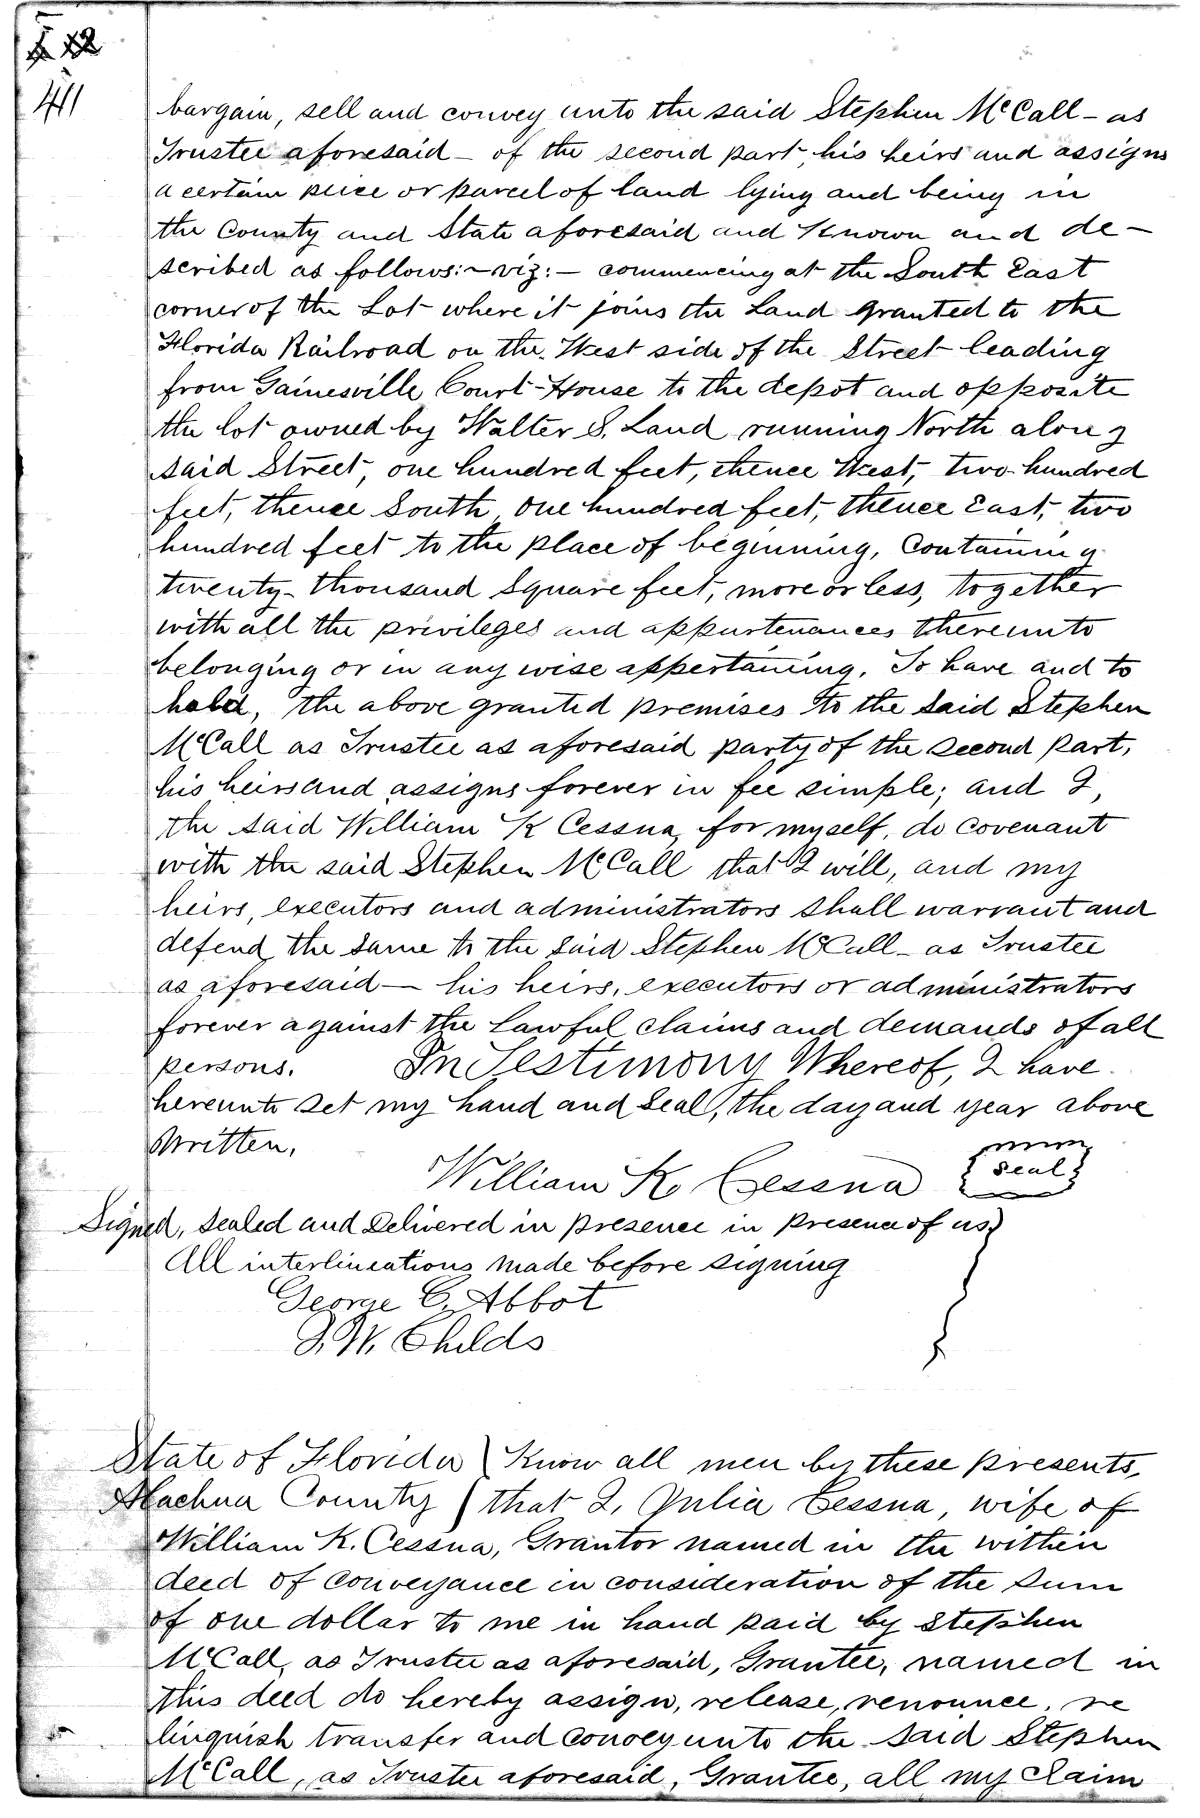 411
bargain, sell and convey unto the said Stephen McCall - as
Trustee aforesaid - of the second part, his heirs and assigns
a certain peice or parcel of land lying and being in
the County and State aforesaid and known and de-
scribed as follows: - viz: - commencing at the South East
corner of the Lot where it joins the Land granted to the
Florida Railroad on the West side of the Street leading
from Gainesville Court-House to the depot and opposite
the lot owned by Walter S. Land running North along
said Street, one hundred feet, thence West, two hundred
feet, thence South, one hundred feet, thence East, two
hundred feet to the place of beginning, Containing
twenty-thousand Square feet, more or less, together
with all the privileges and appurtenances thereunto
belonging or in any wise appertaining. To have and to
hold, the above granted premises to the said Stephen
McCall as Trustee as aforesaid party of the second part,
his heirs and assigns forever in fee simple; and I,
the said William K Cessna, for myself, do covenant
with the said Stephen McCall that I will, and my
heirs, executors and administrators shall warrant and
defend the same to the said Stephen McCall - as Trustee
as aforesaid - his heirs, executors or administrators
forever against the Lawful claims and demands of all
persons. In Testimony Whereof, I have
hereunto set my hand and seal, the day and year above
Written.
William K. Cessna Seal
Signed, sealed and Delivered in presence in presence of us
All interlineations made before signing
George C. Abbot
J. W. Childs
State of Florida ) Know all men by these presents,
Alachua County ( that I, Julia Cessna, wife of
William K. Cessna, Grantor named in the within
deed of conveyance in consideration of the sum
of one dollar to me in hand paid by Stephen
McCall, as Trustee as aforesaid, Grantee, named in
this deed do hereby assign, release, renounce, re
linquish transfer and convey unto the said Stephen
McCall, as Trustee aforesaid, Grantee, all my claim